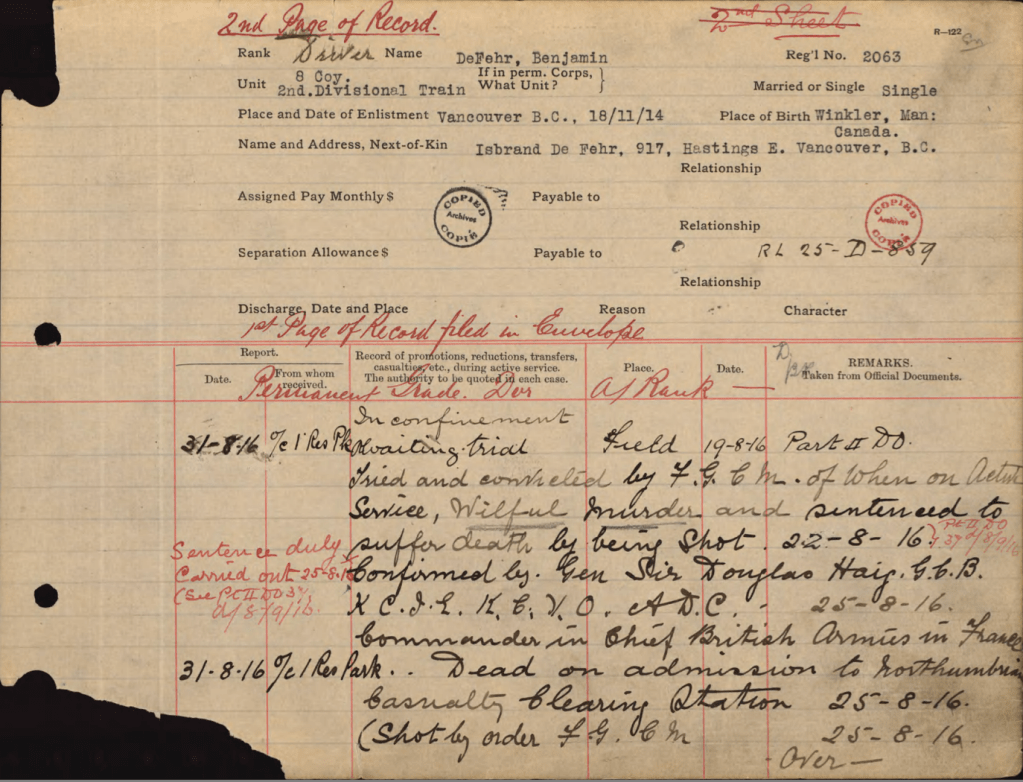 2nd Page of Record. 2nd Sheet
R-122
Rank Driver Name DeFehr, Benjamin Reg'l No. 2063
Unit 8 Coy. 2nd.Divisional Train If in perm. Corps, What Unit? Married or Single Single
Place and Date of Enlistment Vancouver B.C., 18/11/14 Place of Birth Winkler, Man:
Canada.
Name and Address, Next-of-Kin Isbrand De Fehr, 917, Hastings E. Vancouver, B.C.
Relationship
Assigned Pay Monthly $ COPIED Archives COPIÉ Payable to
Relationship COPIED Archives COPIÉ
Separation Allowance $ Payable to RL 25-D-859
Relationship
Discharge, Date and Place Reason Character
1st Page of Record filed in Envelope
Report. Record of promotions, reductions, transfers, casualties, etc., during active service. The authority to be quoted in each case. Place. Date. REMARKS.
Date. From whom received. Taken from Official Documents.
Permanent Grade. Dvr A/Rank —
In confinement
31-8-16 O/c 1 Res Pk Awaiting trial Field 19-8-16 Part II DO.
Tried and convicted by F.G.C.M. of When on Active
Service, Wilful Murder and sentenced to
suffer death by being Shot. 22-8-16. Pt II DO 37 d/8/9/16
Sentence duly
Carried out 25-8-16
(See Pt II DO 37,
d/8/9/16.
Confirmed by. Gen Sir Douglas Haig. G.C.B.
K.C.I.E. K.C.V.O. A.D.C. - 25-8-16.
Commander in Chief British Armies in France
31-8-16 O/c 1 Res Park . . Dead on admission to Northumbrian
Casualty Clearing Station 25-8-16.
(Shot by order F.G.C.M 25-8-16.
- Over —